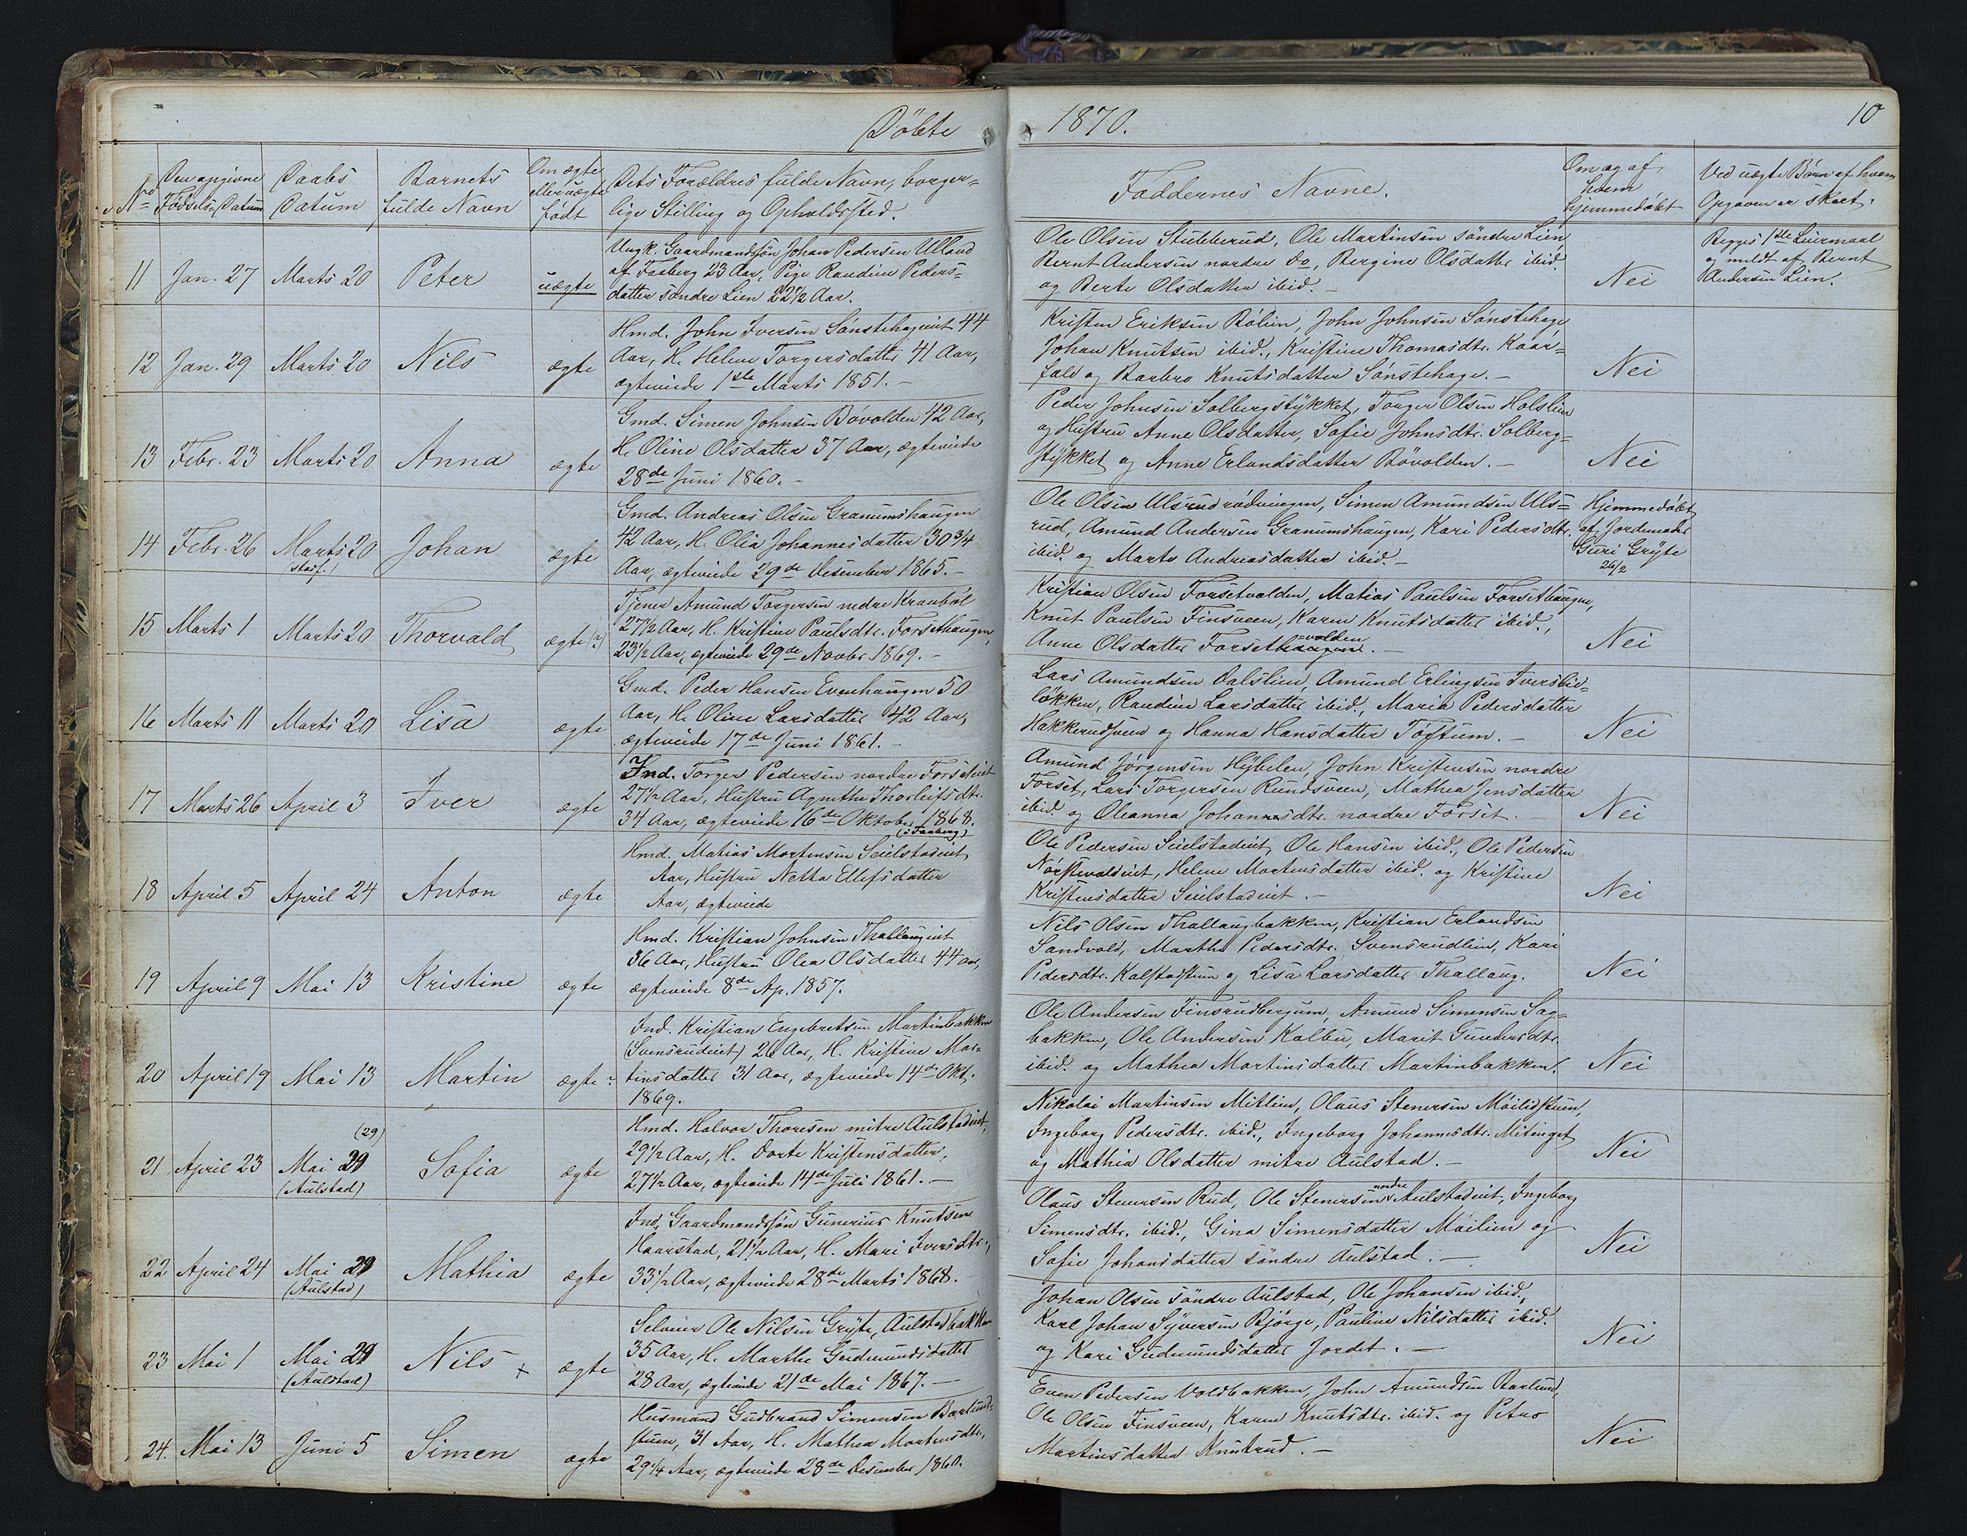 Døbte
1870.
10
No
Den opgivne
Fødsels-Datum
Daabs
Datum
Barnets
fulde Navn
Om ægte
eller uægte
født
Dets Forældres fulde Navn, borger-
lige Stilling og Opholdssted.
Faddernes Navne.
Om og af
hvem
hjemmedøbt
Ved uægte Børn af hvem
Opgaven er skeet.
11 Jan. 27 Marts 20 Peter uægte
Ungk. Gaardmandssøn Johan Pedersen Ulland
af Faaberg 23 Aar, Pige Randine Peders-
datter søndre Lien 22 1/2 Aar.
Ole Olsen Stubberud, Ole Martinsen søndre Lien
Bernt Andersen nordre do, Bergine Olsdatter ibid.
og Berte Olsdatter ibid. –
Nei
Begges 1ste Leiermaal
og meldt af Bernt
Andersen Lien.
12 Jan. 29 Marts 20 Nils ægte
Hmd. John Iversen Sønstehageiet 44
Aar, H. Helene Torgersdatter 41 Aar,
ægteviede 1ste Marts 1851. –
Kristen Eriksen Bølien, John Johnsen Sønstehage
Johan Knutsen ibid., Kristine Thomasdtr. Kaar-
fald og Barbro Knutsdatter Sønstehage. –
Nei
13 Febr. 23 Marts 20 Anna ægte
Gmd. Simen Johnsen Bøvolden 42 Aar,
H. Oline Olsdatter 37 Aar, ægteviede
28de Juni 1860. –
Peder Johnsen Solbergstykket, Torger Olsen Holslien
og Hustru Anne Olsdatter, Sofie Johnsdtr. Solberg-
stykket og Anne Erlandsdatter Bøvolden. –
Nei
14 Febr. 26 Marts 20 Johan ægte
(stadf.)
Gmd. Andreas Olsen Granumshaugen
42 Aar, H. Olia Johannesdatter 30 3/4
Aar, ægteviede 29de Desember 1865. –
Ole Olsen Ulsrudrødningen, Simen Amundsen Uls-
rud, Amund Andersen Granumshaugen, Kari Pedersdtr.
ibid. og Marte Andreasdatter ibid. –
Hjemmedøbt
af Jordemoder
Guri Gryte
26/2
15 Marts 1 Marts 20 Thorvald ægte (?)
Tjener Amund Torgersen nedre Kranbøl
27 1/2 Aar, H. Kristine Paulsdtr. Forsethaugen,
23 1/2 Aar, ægteviede 29de Novbr. 1869. –
Kristian Olsen Forsetvolden, Matias Paulsen Forsethaugen,
Knut Paulsen Finsveen, Karen Knutsdatter ibid.,
-volden
Anne Olsdatter Forsethaugen. –
Nei
16 Marts 11 Marts 20 Lisa ægte
Gmd. Peder Hansen Evenhaugen 50
Aar, H. Oline Larsdatter 42 Aar,
ægteviede 17de Juni 1861. –
Lars Amundsen Dalslien, Amund Erlingsen Iversbie-
løkken, Randine Larsdatter ibid., Maria Pedersdatter
Hakkerudsveen og Hanna Hansdatter Toftum. –
Nei
17 Marts 26 April 3 Iver ægte
Ind. Torger Pedersen nordre Forseteiet
27 1/2 Aar, Hustru Agnethe Thorleifsdtr.
34 Aar, ægteviede 16de Oktober 1868.
(i Faaberg)
Amund Jørgensen Hybelen, John Kristensen nordre
Forset, Lars Torgersen Rundsveen, Mathea Jensdatter
ibid. og Oleanna Johannesdtr. nordre Forset. –
Nei
18 April 5 April 24 Anton ægte
Hmd. Matias Mortensen Seielstadeiet
Aar, Hustru Netta Ellefsdatter
Aar, ægteviede
Ole Pedersen Seielstadeiet, Ole Hansen ibid., Ole Pedersen
Nørstevoldeiet, Helene Mortensdatter ibid. og Kristine
Kristensdatter Seielstadeiet. –
Nei
19 April 9 Mai 13 Kristine ægte
Hmd. Kristian Johnsen Thallaugeiet
36 Aar, Hustru Olea Olsdatter 44 Aar,
ægteviede 8de Ap. 1857.
Nils Olsen Thallaugbakken, Kristian Erlandsen
Sandvold, Marthe Pedersdtr. Svensrudlien, Kari
Pedersdtr. Kalstastuen og Lisa Larsdatter Thallaug.
Nei
20 April 19 Mai 13 Martin ægte
Ind. Kristian Engebretsen Martinbakken
(Svensrudeiet) 26 Aar, H. Kristine Mar-
tinsdatter 31 Aar, ægteviede 14de Okt.
1869.
Ole Andersen Finsrudbergum, Amund Simensen Sag-
bakken, Ole Andersen Kalbu, Marit Gundersdtr.
ibid. og Mathea Martinsdatter Martinbakken.
Nei
21 April 23 Mai 29 Sofia ægte
(29)
(Aulstad)
Hmd. Halvor Thoresen mitre Aulstadeiet,
29 1/2 Aar, H. Dorte Kristensdatter,
27 1/2 Aar, ægteviede 14de Juli 1861. –
Nikolai Martinsen Mitlien, Olaus Stenersen Moilidstuen,
Ingeborg Pedersdtr. ibid., Ingeborg Johannesdtr. Miteiet
og Mathia Olsdatter mitre Aulstad. –
Nei
22 April 24 Mai 29 Mathia ægte
(Aulstad)
Ind. Gaardmandssøn Gunerius Knutsen
Haarstad, 21 1/2 Aar, H. Mari Iversdtr.,
33 1/2 Aar, ægteviede 28de Marts 1868. –
Olaus Stenersen Rud, Ole Stenersen nordre Aulstadeiet, Ingeborg
Simensdtr. ibid., Gina Simensdatter Moilien og
Sofie Johansdatter søndre Aulstad. –
Nei
23 Mai 1 Mai 29 Nils + ægte
(Aulstad)
Selveier Ole Nilsen Gryte, Aulstadbakken
35 Aar, H. Marthe Gudmundsdatter
28 Aar, ægteviede 21de Mai 1867. –
Johan Olsen søndre Aulstad, Ole Johansen ibid.,
Karl Johan Syversen Bjørge, Pauline Nilsdatter ibid.
og Kari Gudmundsdatter Jordet. –
Nei
24. Mai 13 Juni 5 Simen ægte
Husmand Gudbrand Simensen Baarlund-
stuen, 31 Aar, H. Mathea Mortensdtr.,
29 1/4 Aar, ægteviede 28de Desember 1860.
Even Pedersen Voldbakken, John Amundsen Baarlund,
Ole Olsen Finsveen, Karen Knutsdtr. ibid. og Petro
Martinsdatter Knutrud. –
Nei